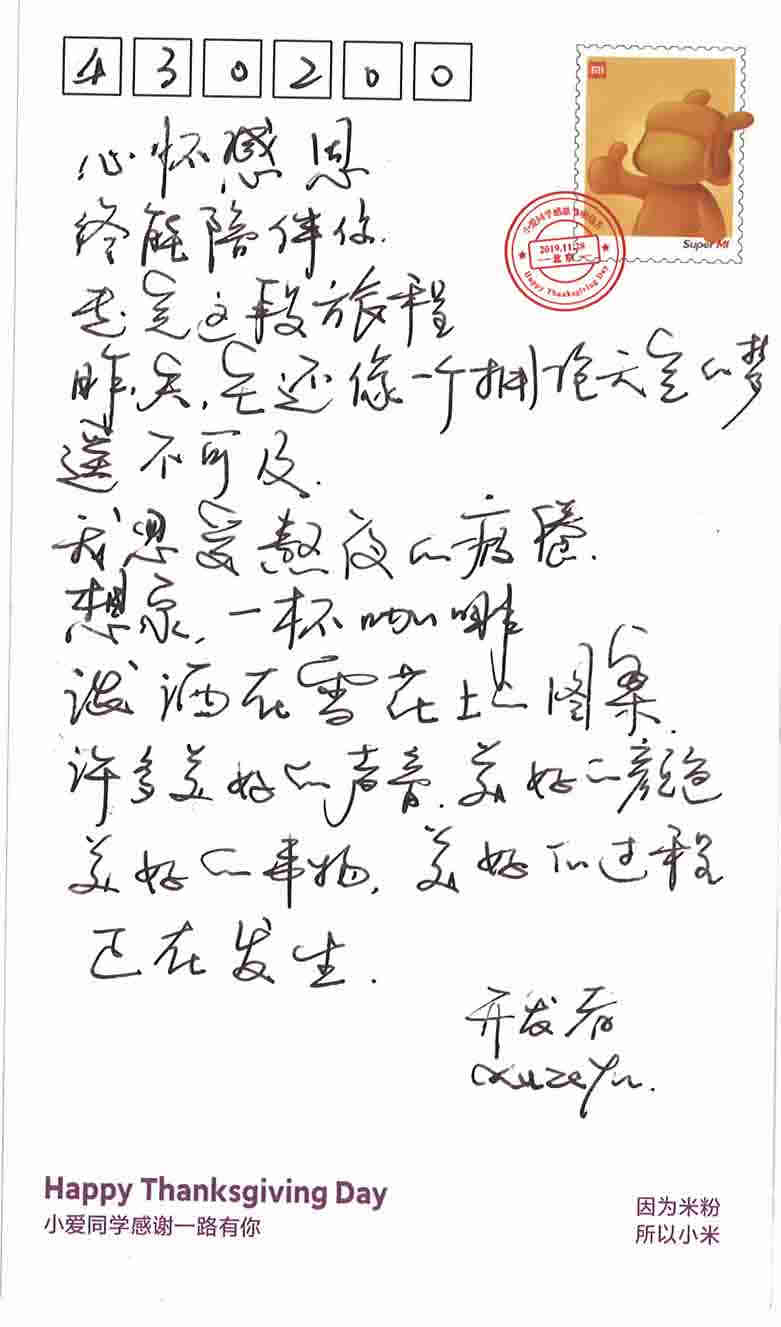 430200
MI
Super MI
小爱同学感恩
2019.11.28
北京
Happy Thanksgiving Day
心怀感恩
终能陪伴你.
走完这段旅程
昨天,它还像一个拥抱天空的梦
遥不可及.
我忍受熬夜的病
想家,一杯咖啡
泼洒在雪花上的图案.
许多美好的声音.美好的颜色
美好的事物,美好的过程
正在发生.
开发者
Happy Thanksgiving Day
小爱同学感谢一路有你
因为米粉
所以小米